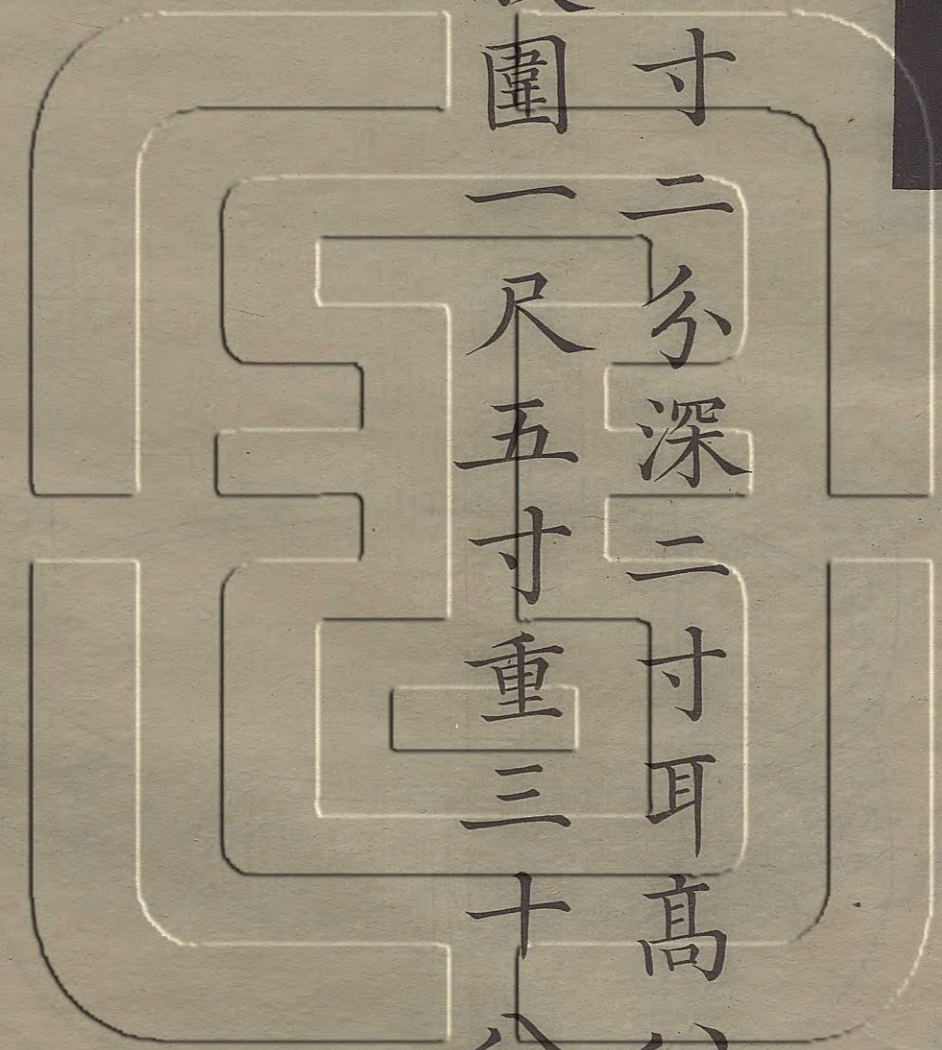 寸二分深二寸耳高八
圍一尺五寸重三十八